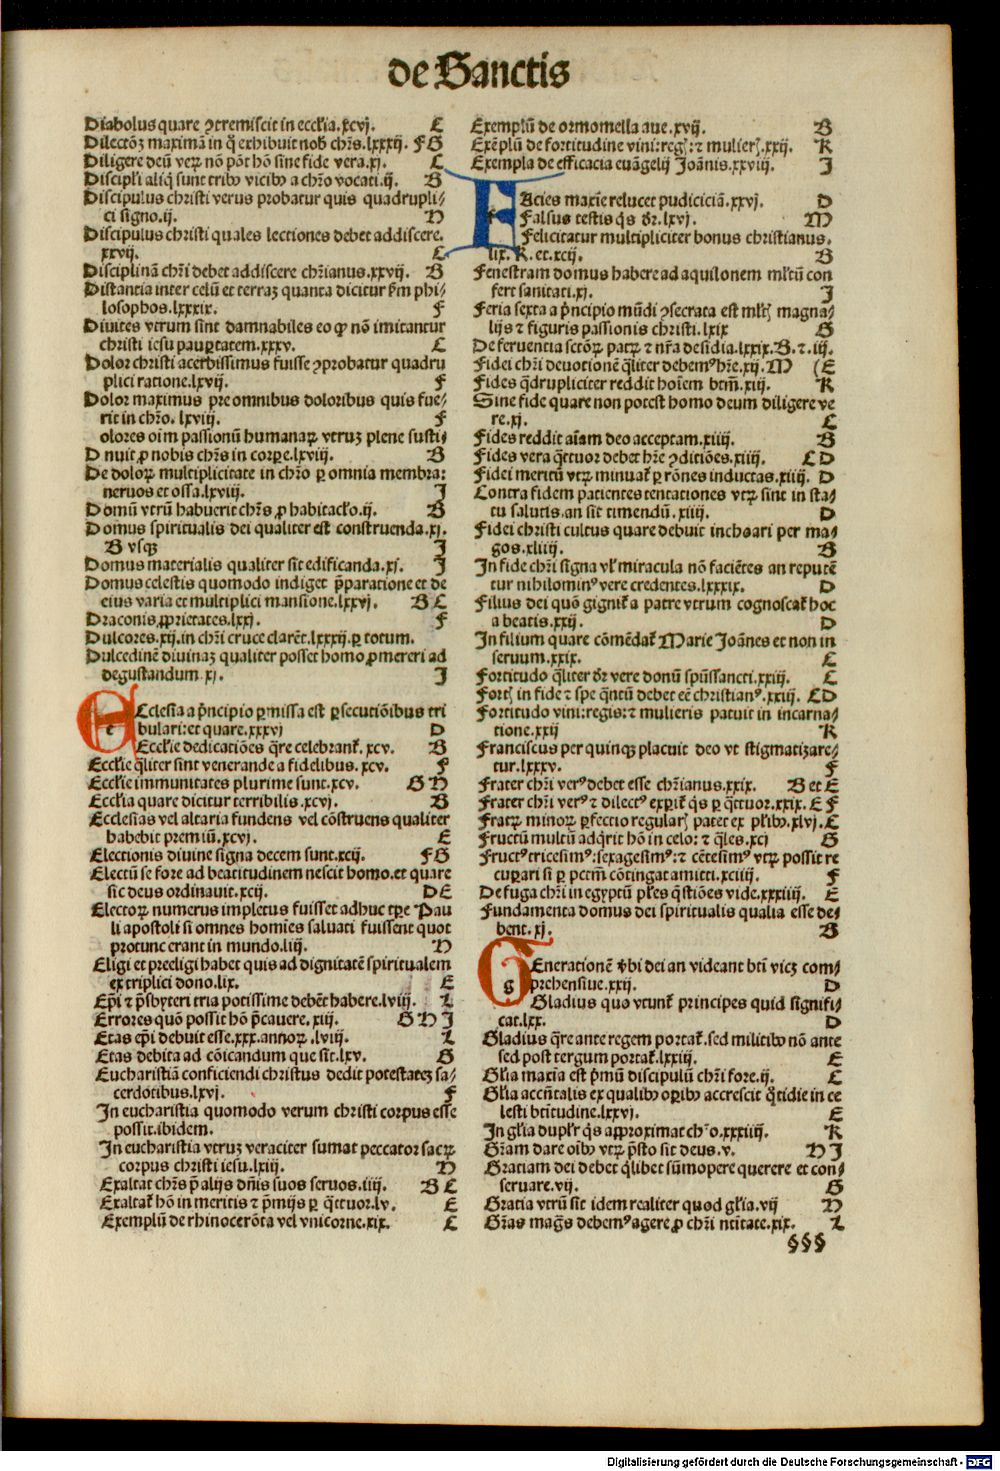 de Sanctis
Diabolus quare ꝯtremiscit in eccl'ia.xcvj. C
Dilectōꝫ maximā in q̊ exhibuit nob̄ chr̄s.lxxxij. F G
Diligere deū veꝝ nō pōt hō sine fide vera.xj. C
Discip̄li aliq̄ sunt tribꝰ vicibꝰ a chr̄o vocati.ij. B
Discipulus christi verus probatur quis quadrupli⸗
ci signo.ij. H
Discipulus christi quales lectiones debet addiscere.
xxvij. C
Disciplinā chr̄i debet addiscere chr̄ianus.xxvij. B
Distantia inter celū et terraꝫ quanta dicitur ẜm phi⸗
losophos.lxxxix. F
Divites vtrum sint damnabiles eo ꝙ nō imitantur
christi iesu pauꝑtatem.xxxv. C
Dolor christi acerbissimus fuisse ꝯprobatur quadru
plici ratione.lxvij. F
Dolor maximus pre omnibus doloribus quis fue⸗
rit in chr̄o. lxviij. F
olores oīm passionū humanaꝝ vtruꝫ plene susti⸗
D nuit ꝓ nobis chr̄s in corꝑe.lxviij. B
De doloꝝ multiplicitate in chr̄o ꝑ omnia membra:
neruos et ossa.lxviij. J
Domū vtrū habuerit chr̄s ꝓ habitacl̄o.ij. B
Domus spiritualis dei qualiter est construenda.xj.
B vsqꝫ J
Domus materialis qualiter sit edificanda.xj. J
Domus celestis quomodo indiget p̄paratione et de
eius varia et multiplici mansione.lxxvj. B C
Draconis ꝓprietates.lxxj. F
Dulcores.xij.in chr̄i cruce clarēt.lxxxij.ꝑ totum.
Dulcedinē divinaꝫ qualiter posset homo ꝓmereri ad
degustandum.xj. J
e Cclesia a p̄ncipio ꝑmissa est ꝑsecutiōibus tri
bulari:et quare.xxxvj D
Eccl'ie dedicatiōes q̄re celebrant᷑. xcv. B
Eccl'ie q̄liter sint venerande a fidelibus. xcv. F
Eccl'ie immunitates plurime sunt.xcv. G H
Eccl'ia quare dicitur terribilis.xcvj. B
Ecclesias vel altaria fundens vel cōstruens qualiter
habebit premiū.xcvj. E
Electionis divine signa decem sunt.xcij. F G
Electū se fore ad beatitudinem nescit homo.et quare
sic deus ordinauit.xcij. D E
Electoꝝ numerus impletus fuisset adhuc tꝑe Pau
li apostoli si omnes homīes saluati fuissent quot
protunc erant in mundo.liij. H
Eligi et preeligi habet quis ad dignitatē spiritualem
ex triplici dono.lix. E
Ep̄i ⁊ p̄sbyteri tria potissime debēt habere.lviij. L
Errores quō possit hō p̄cauere. xiij. G H J
Etas ep̄i debuit esse.xxx.annoꝝ .lviij. L
Etas debita ad cōicandum que sit.lxv. G
Eucharistiā conficiendi christus dedit potestateꝫ sa⸗
cerdotibus.lxvj. F
In eucharistia quomodo verum christi corpus esse
possit.ibidem.
In eucharistia vtruꝫ veraciter sumat peccator sacꝝ
corpus christi iesu.lxiij. H
Exaltat chr̄s p̄ alijs dn̄is suos seruos.iiij. B C
Exaltat᷑ hō in meritis ⁊ p̄mijs ꝑ q̄ttuor.lv. E
Exemplū de rhinocerōta vel vnicorne.xix. C
Exemplū de ormomella aue.xvij. B
Exēplū de fortitudine vini:reḡ:⁊ mulier̄.xxij. K
Exempla de efficacia euāgelij Joānis.xxviij. J
F Acies maxīe relucet pudiciciā.xxvj. D
Falsus testis q̄s dr̄.lxvj. M
Felicitatur multipliciter bonus christianus.
lix. K. et.xcij. B
Fenestram domus habere ad aquilonem ml̄tū con
fert sanitati.xj. J
Feria sexta a p̄ncipio mūdi ꝯsecrata est ml̄t̄ magna⸗
lijs ⁊ figuris passionis christi.lxix G
De feruentia sctōꝝ patꝝ ⁊ nr̄a desidia.lxxix.B.⁊.iij.
Fidei chr̄i deuotionē q̄liter debemꝰ hr̄e.xij.M (E
Fides q̄drupliciter reddit hoīem btm̄.xiij. K
Sine fide quare non potest homo deum diligere ve
re.xj. C
Fides reddit aīam deo acceptam.xiiij. B
Fides vera q̄ttuor debet hr̄e ꝯditiōes.xiiij. C D
Fidei meritū vtꝝ minuat᷑ ꝑ rōnes inductas.xiiij. D
Contra fidem patientes tentationes vtꝝ sint in sta⸗
tu salutis.an sit timendū.xiiij. D
Fidei christi cultus quare debuit inchoari per ma⸗
gos.xliiij. B
In fide chr̄i signa vl̓ miracula nō faciētes an reputē
tur nihilominꝰ vere credentes.lxxxix. D
Filius dei quō gignit᷑ a patre vtrum cognoscat᷑ hoc
a beatis.xxij. D
In filium quare cōmēdat᷑ Marie Joānes et non in
seruum.xxix. C
Fortitudo q̄liter dr̄ vere donū spūssancti.xxiij. C
Fort̄ in fide ⁊ spe q̄ntū debet eē christianꝰ.xxiij. C D
Fortitudo vini:regis:⁊ mulieris patuit in incarna⸗
tione.xxij K
Franciscus per quinqꝫ placuit deo vt stigmatizare⸗
tur.lxxxv. F
Frater chr̄i verꝰ debet esse chr̄ianus.xxix. B et E
Frater chr̄i verꝰ ⁊ dilectꝰ exꝑit᷑ q̄s ꝑ q̄ttuor.xxix. E F
Fratꝝ minoꝝ ꝑfectio regular̄ patet ex pl̄ibꝰ.xlvj. C
Fructū multū adq̄rit hō in celo: ⁊ q̄les.xcj G
Fructꝰ tricesimꝰ:sexagesimꝰ:⁊ cētesimꝰ vtꝝ possit re
cuꝑari si ꝑ pctm̄ cōtingat amitti.xciiij. F
De fuga chr̄i in egyptū pl̄es q̄stiōes vide.xxxiiij. E
Fundamenta domus dei spiritualis qualia esse de⸗
bent. xj. B
g Enerationē v̓bi dei an videant bt̄i viꝫ com⸗
prehensiue.xxij. D
Gladius quo vtunt᷑ principes quid signifi⸗
cat.lxx. D
Gladius q̄re ante regem portat᷑.sed militibꝰ nō ante
sed post tergum portat᷑.lxxiij. E
Gl'ia maxīa est p̄mū discipulū chr̄i fore.ij. C
Gl'ia accn̄talis ex qualibꝰ oꝑibꝰ accrescit q̄tidie in ce
lesti bt̄itudine.lxxvj. E
In gl'ia dupl̄r q̄s approximat chr̄o.xxxiiij. K
Gr̄am dare oibꝰ vtꝝ p̄sto sit deus.v. H J
Gratiam dei debet q̄libet sūmopere querere et con⸗
seruare.vij. G
Gratia vtrū sit idem realiter quod gl'ia.vij H
Gr̄as mag̃s debemꝰ agere ꝓ chr̄i ntitate.xix. L
§§§
Digitalisierung gefördert durch die Deutsche Forschungsgemeinschaft - DFG